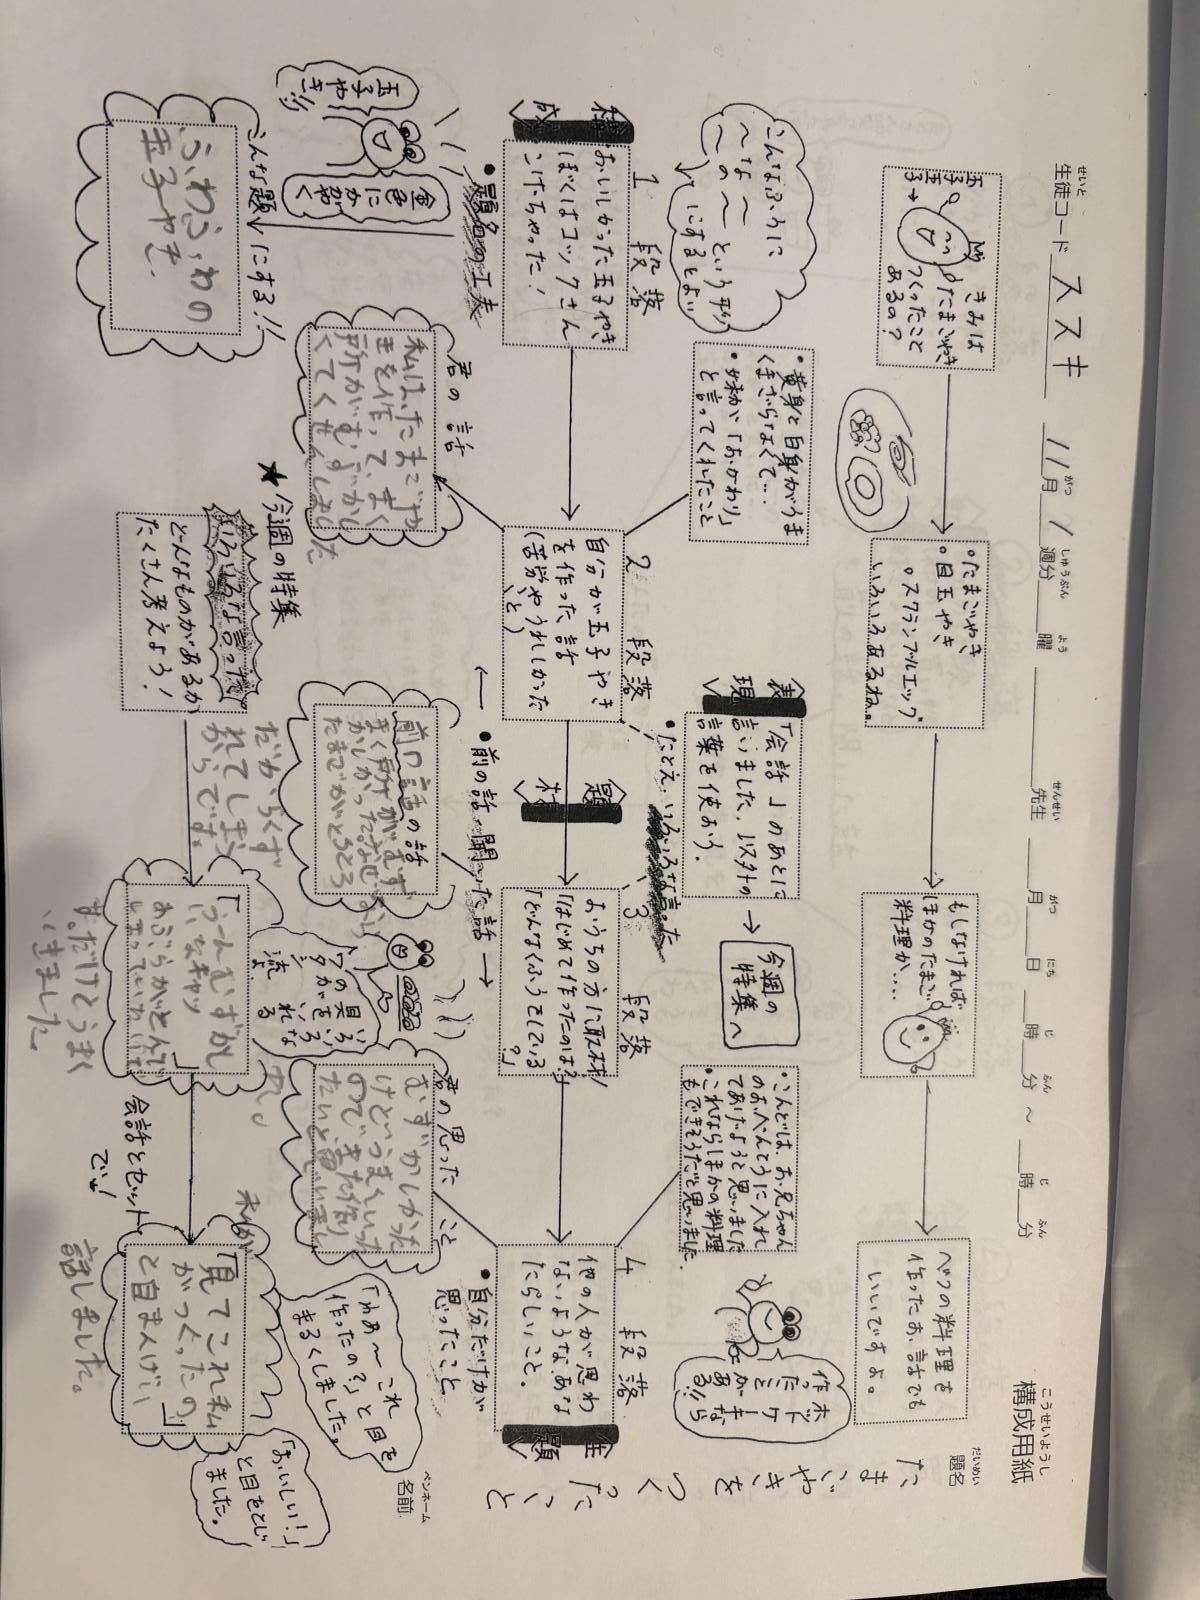 構成用紙
こうせいようし
生徒コード ススキ 11月 1週分 曜 先生 月 日 時 分 ～ 時 分
せいと がつ しゅうぶん よう せんせい がつ にち じ ふん じ ふん
題名
だいめい
たまごやきをつくったこと
ペンネーム
名前
きみは
たまごやき
つくったこと
あるの？
・たまごやき
・目玉やき
・スクランブルエッグ
いろいろあるね。
もしなければ
ほかのたまご
料理か….
べつの料理を
作ったお話でも
いいですよ。
こんなふうに
〜な〜
〜の〜という形
にするとよい
・黄身と白身がうま
くまざらなくて…
・妹が「おかわり」
と言ってくれたこと
〈表現〉
「会話」のあとに
言いました、以外の
言葉を使おう。
→
今週の
特集へ
・こんどは、お兄ちゃん
のおべんとうに入れ
てあげようと思いました
これならほかの料理
もできそうだと思いました。
ホット
ケーキなら
作った
ことが
ある!!
〈構成〉
1段落
おいしかった玉子やき
ぼくはコックさん
こげちゃった！
2段落
自分が玉子やき
を作った話
（苦労やうれしかった
こと）
〈題材〉
3段落
おうちの方に取材！
「はじめて作ったのは？」
「どんなくふうをしている
？」
4段落
他の人が思わ
ないようなあな
たらしいこと。
〈主題〉
・題名の工夫
玉子
やき!!
金色に
かがやく
こんな題にする!!
ふわふわの
玉子やき。
君の話
私は、たまごや
きを作って、まく
所がむずかし
くてくせんしました
←・前の話・聞いた話→
前の話
まく所がむず
かしかった
・自分だけが
思ったこと
君の思ったこと
むずかしかった
けどうまくいった
のでまた作り
たいと思いまし
た。
「わぁ〜これ
作ったの？」と目を
まるくしました。
★今週の特集
いろいろな言った
どんなものがあるか
たくさん考えよう！
だからくず
れてしまう
からです。
「うーんむずかし
いな
あぶらがとんで
す。だけどうまく
いきました。
会話とセット
でぃ！
私が
「見てこれ私
がつくったの」
と自まんげに
話しました。
「おいしい！」
と目をとじ
ました。